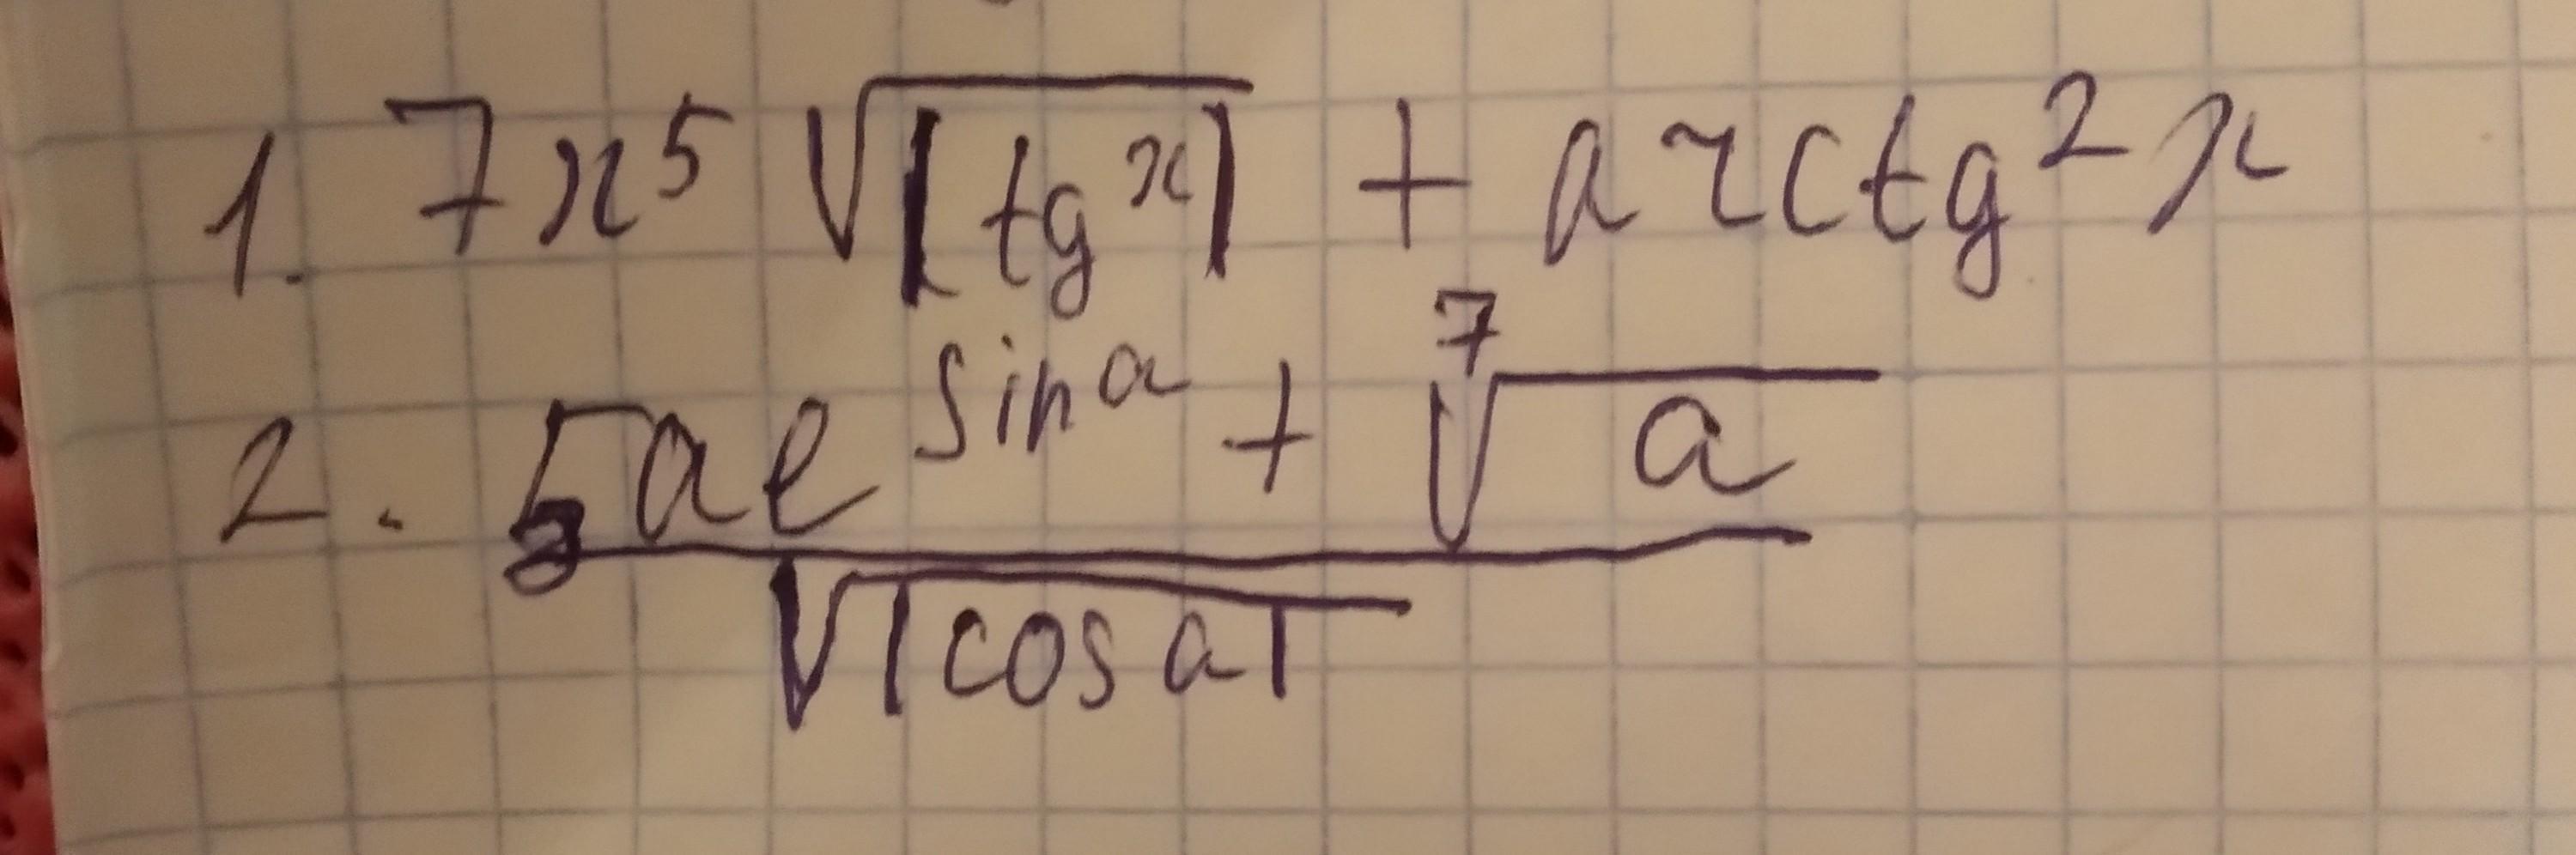 1. 7x⁵ √|tg x| + arctg² x
2. 5ae^(sin a) + ⁷√a
√|cos a|